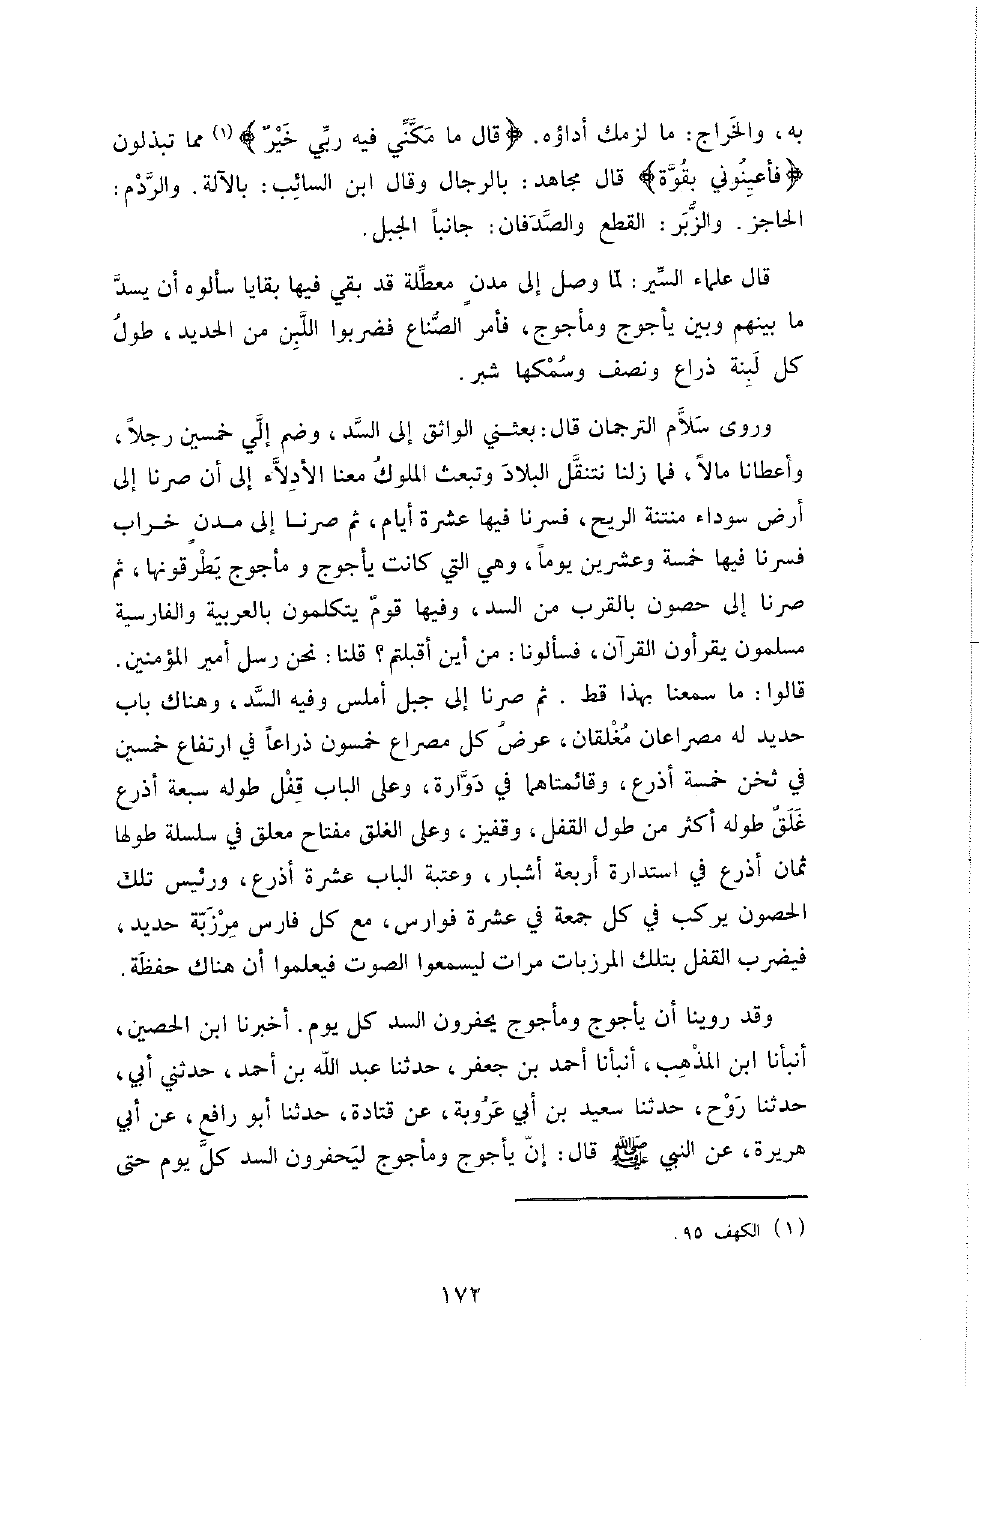 به ، والخَراج : ما لزمك أداؤه . ﴿قال ما مَكَّنِّي فيه ربِّي خَيْرٌ﴾(١) مما تبذلون
﴿فأعينُوني بقُوَّة﴾ قال مجاهد : بالرجال وقال ابن السائِب : بالآلة . والرَّدْم :
الحاجز . والزُّبَر : القطع والصَّدَفان : جانباً الجبل .
قال علماء السِّير : لما وصل إلى مدنٍ معطَّلة قد بقي فيها بقايا سألوه أن يسدَّ
ما بينهم وبين يأجوج ومأجوج ، فأمر الصُّناع فضربوا اللَّبِن من الحديد ، طولُ
كل لَبِنة ذراع ونصف وسُمْكها شبر .
وروى سَلاَّم الترجمان قال : بعثني الواثق إلى السَّد ، وضم إلَّي خمسين رجلاً ،
وأعطانا مالاً ، فما زلنا نتنقَّل البلادَ وتبعث الملوكُ معنا الأدِلاَّء إلى أن صرنا إلى
أرض سوداء منتنة الريح ، فسرنا فيها عشرة أيام ، ثم صرنا إلى مدنٍ خراب
فسرنا فيها خمسة وعشرين يوماً ، وهي التي كانت يأجوج و مأجوج يَطْرقونها ، ثم
صرنا إلى حصون بالقرب من السد ، وفيها قومٌ يتكلمون بالعربية والفارسية
مسلمون يقرأون القرآن ، فسألونا : من أين أقبلتم ؟ قلنا : نحن رسل أمير المؤمنين .
قالوا : ما سمعنا بهذا قط . ثم صرنا إلى جبل أملس وفيه السَّد ، وهناك باب
حديد له مصراعان مُغْلقان ، عرضُ كل مصراع خمسون ذراعاً في ارتفاع خمسين
في ثخن خمسة أذرع ، وقائمتاهما في دَوَّارة ، وعلى الباب قِفْل طوله سبعة أذرع
غَلَقٌ طوله أكثر من طول القفل ، وقفيز ، وعلى الغلق مفتاح معلق في سلسلة طولها
ثمان أذرع في استدارة أربعة أشبار ، وعتبة الباب عشرة أذرع ، ورئيس تلك
الحصون يركب في كل جمعة في عشرة فوارس ، مع كل فارس مِرْزَبّة حديد ،
فيضرب القفل بتلك المرزبات مرات ليسمعوا الصوت فيعلموا أن هناك حفظَة .
وقد روينا أن يأجوج ومأجوج يحفرون السد كل يوم . أخبرنا ابن الحصين ،
أنبأنا ابن المذْهِب ، أنبأنا أحمد بن جعفر ، حدثنا عبد الله بن أحمد ، حدثني أبي ،
حدثنا رَوْح ، حدثنا سعيد بن أبي عَرُوبة ، عن قتادة ، حدثنا أبو رافع ، عن أبي
هريرة ، عن النبي ﷺ قال : إنّ يأجوج ومأجوج ليَحفرون السد كلَّ يوم حتى
(١) الكهف ٩٥ .
١٧٢